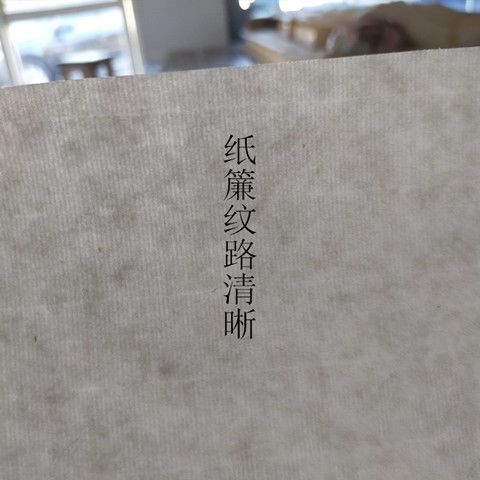 纸簾纹路清晰